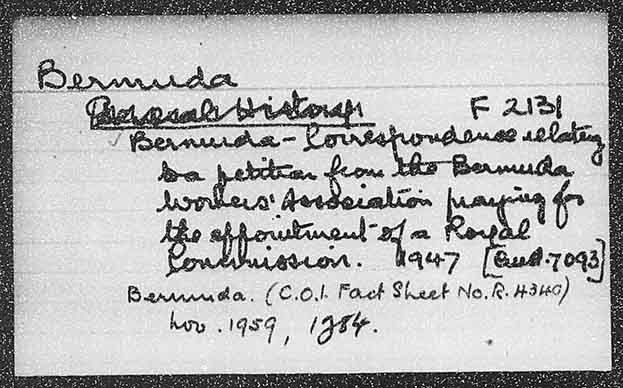 Bermuda
General History F 2131
Bermuda - Correspondence relating
to a petition from the Bermuda
Workers' Association praying for
the appointment of a Royal
Commission. 1947 [Cmd. 7093]
Bermuda. (C.O.I. Fact Sheet No. R. 4340)
Nov. 1959, 1984.